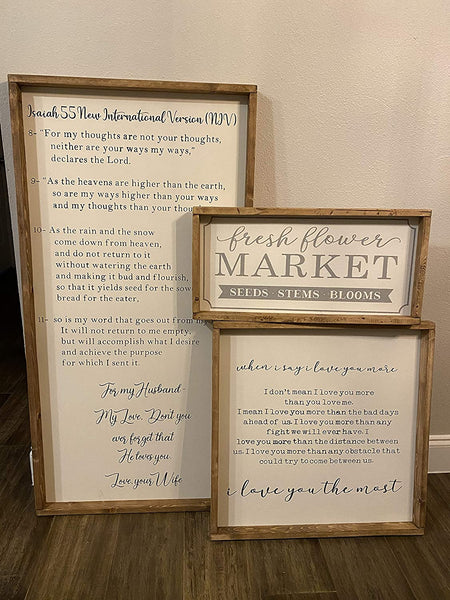 Isaiah 55 New International Version (NIV)
8- "For my thoughts are not your thoughts,
neither are your ways my ways,"
declares the Lord.
9- "As the heavens are higher than the earth,
so are my ways higher than your ways
and my thoughts than your
10- As the rain and the snow
come down from heaven,
and do not return to it
without watering the earth
and making it bud and flourish,
so that it yields seed for the sow
bread for the eater,
11- so is my word that goes out from
It will not return to me empty,
but will accomplish what I desire
and achieve the purpose
for which I sent it.
For my Husband -
My Love, Don't you
ever forget that
He loves you.
Love, your Wife
fresh flower
MARKET
SEEDS · STEMS · BLOOMS
when i say i love you more
I don't mean I love you more
than you love me.
I mean I love you more than the bad days
ahead of us. I love you more than any
fight we will ever have. I
love you more than the distance between
us. I love you more than any obstacle that
could try to come between us.
i love you the most